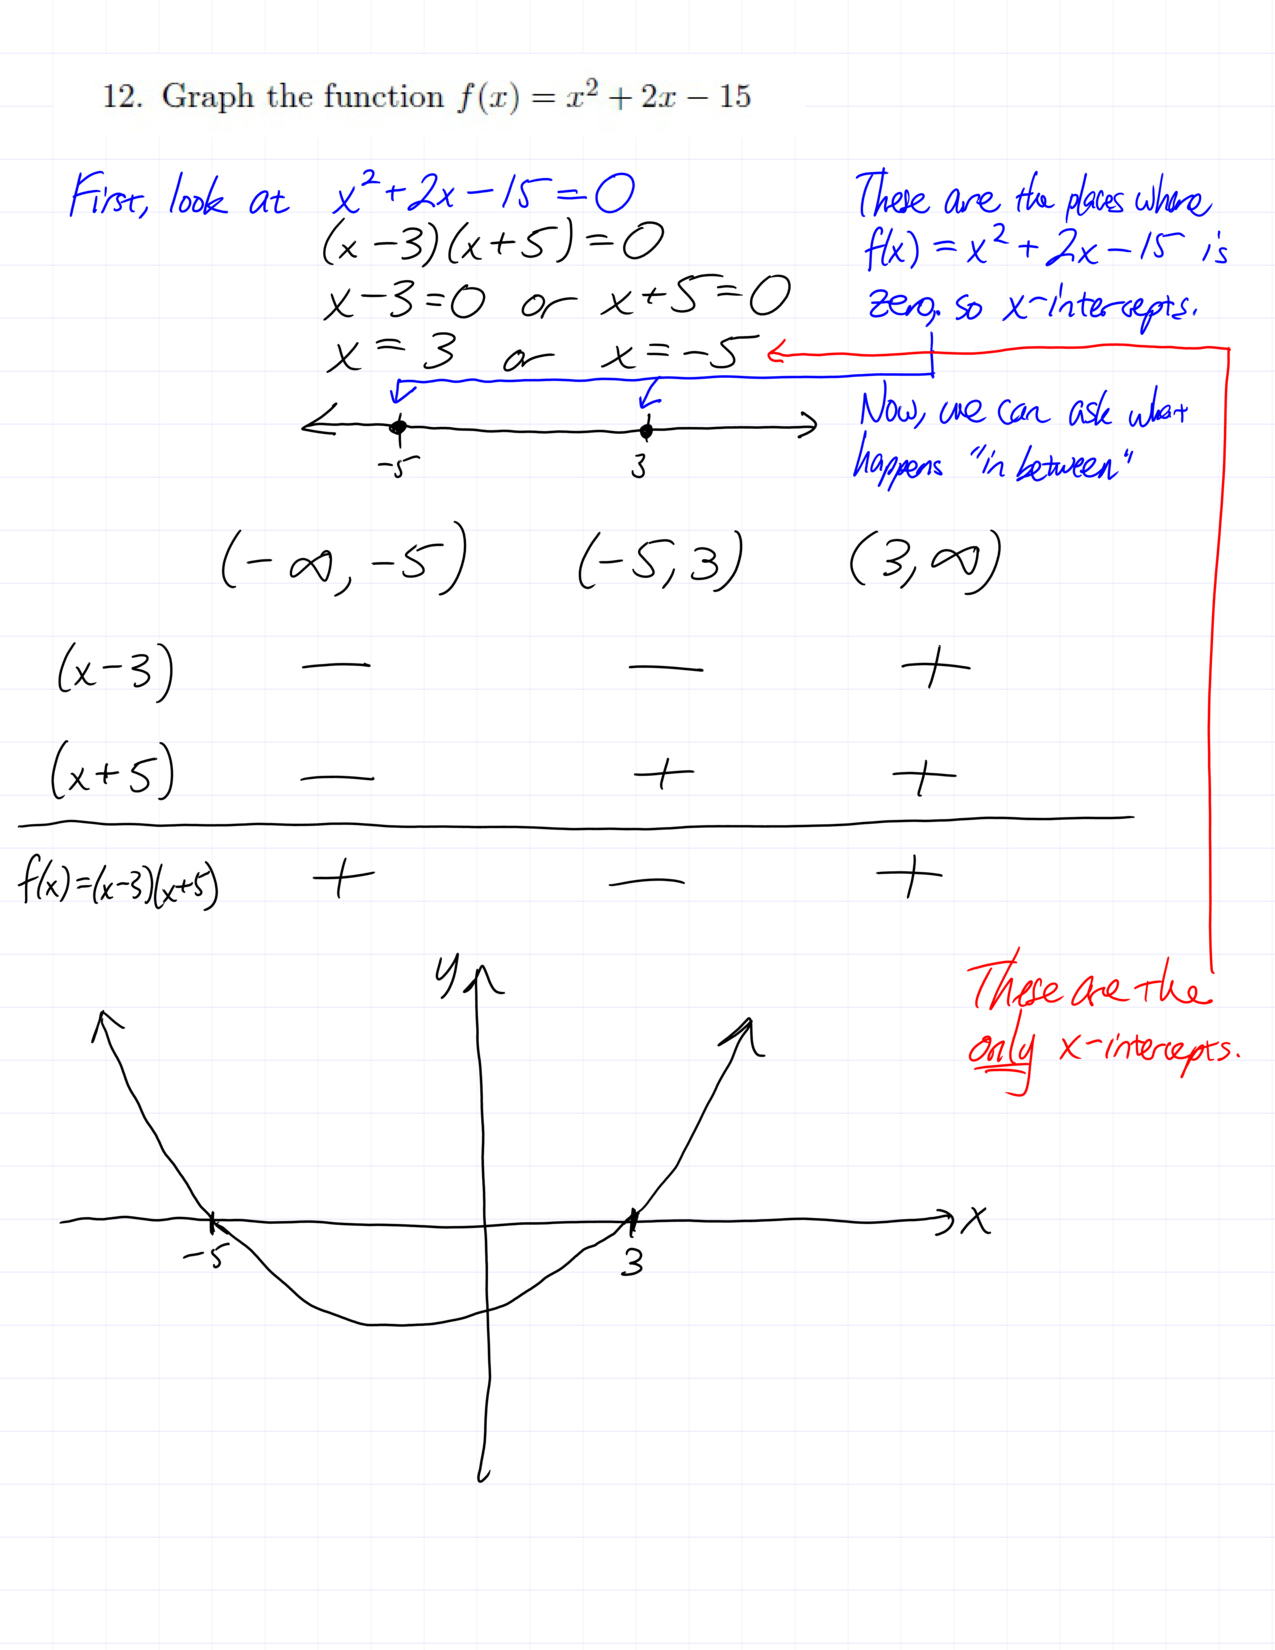 12. Graph the function f(x) = x² + 2x − 15
First, look at x² + 2x − 15 = 0
(x − 3)(x + 5) = 0
x − 3 = 0 or x + 5 = 0
x = 3 or x = −5
These are the places where
f(x) = x² + 2x − 15 is
zero, so x-intercepts.
Now, we can ask what
happens "in between"
−5 3
(−∞, −5) (−5, 3) (3, ∞)
(x − 3) − − +
(x + 5) − + +
f(x) = (x−3)(x+5) + − +
These are the
only x-intercepts.
y
x
−5 3